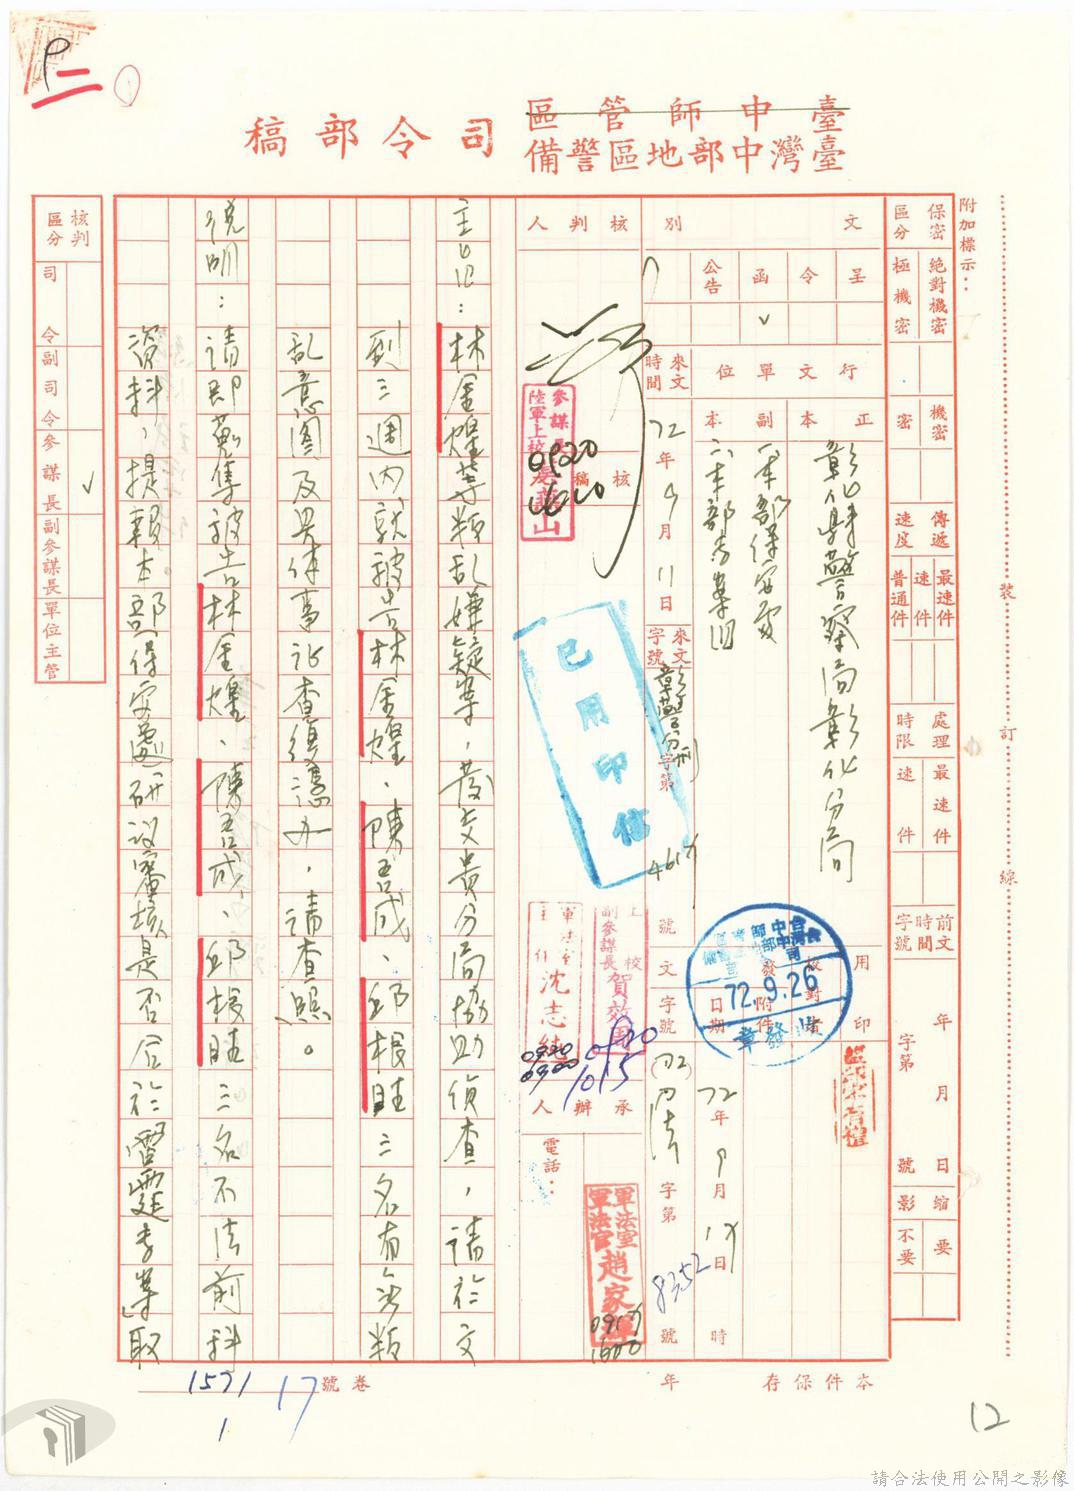 臺中師管區
臺灣中部地區警備司令部稿
附加標示：
裝 訂 線
保密區分
絕對機密
極機密
機密
密
傳遞速度
最速件
速件
普通件
處理時限
最速件
速件
前文時間字號
年 月 日
字第 號
縮影
要
不要
文別
呈
令
函 ✓
公告
行文單位
正本
彰化縣警察局彰化分局
副本
本部保安處
本部專案
來文時間
72年9月11日
來文字號
字第 號
核判人
核稿
參謀長
陸軍上校
0920
已用印信
上校副參謀長賀效
0920
1015
軍法室主任沈志
0920
0900
承辦人
電話：
軍法室軍法官趙家
1600
用印
校對
附件
發文日期
72.9.26
發文字號
72年9月 日 時
字第8352號
本件保存 年
主旨：林金煌等叛亂嫌疑案，發交貴分局協助偵查，請於文
到三週內就被告林金煌、陳吾成、邱根旺三名有無叛
亂意圖及具體事証查復憑办，請查照。
說明：請即蒐集被告林金煌、陳吾成、邱根旺三名不法前科
資料，提報本部保安處研議審核是否合於「雷霆專案」取
核判區分
司令
副司令
參謀長 ✓
副參謀長
單位主管
卷號
17
1571
1
12
請合法使用公開之影像